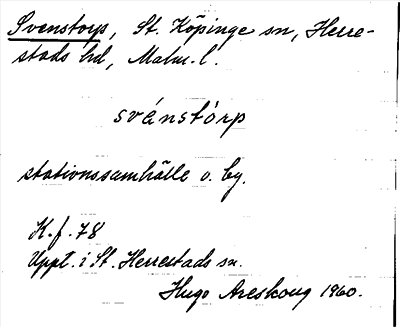 Svenstorp, St. Köpinge sn, Herre-
stads hd, Malm.l.
svánstòrp
stationssamhälle o. by.
K.f. 78
Uppt. i St. Herrestads sn.
Hugo Areskoug 1960.